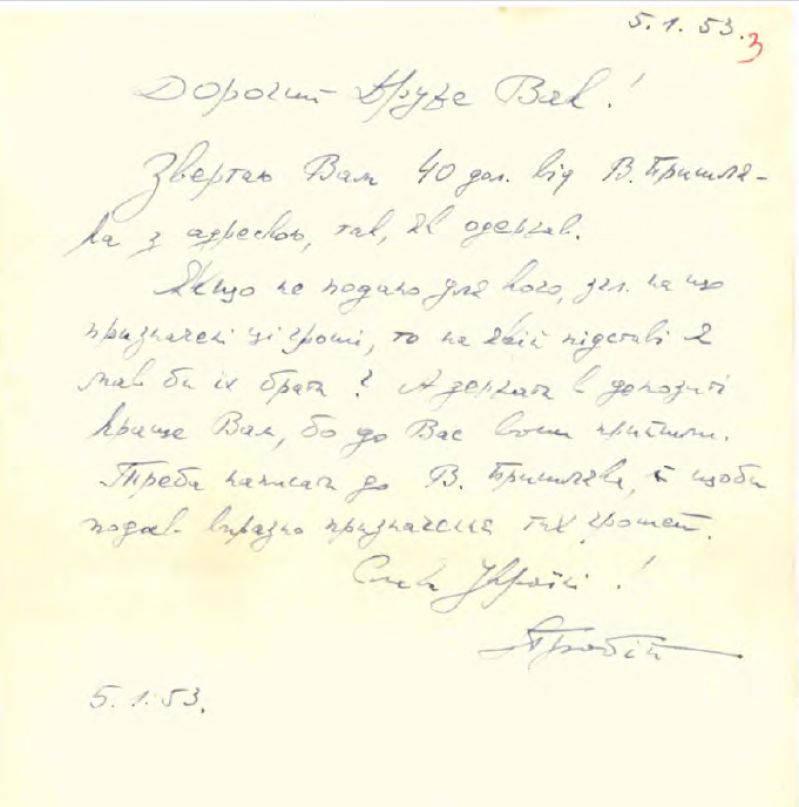 5.1.53.
3
Дорогий Друже Вак!
Звертаю Вам 40 дол. від В. Пришля-
ка з адресою, так, як одержав.
Якщо не подано для кого, зgl. на що
призначені ці гроші, то на якій підставі я
мав би їх брати? А держати в депозиті
краще Вам, бо до Вас вони прийшли.
Треба написати до В. Пришляка, щоби
подав виразно призначення тих грошей.
Слава Україні!
5.1.53.